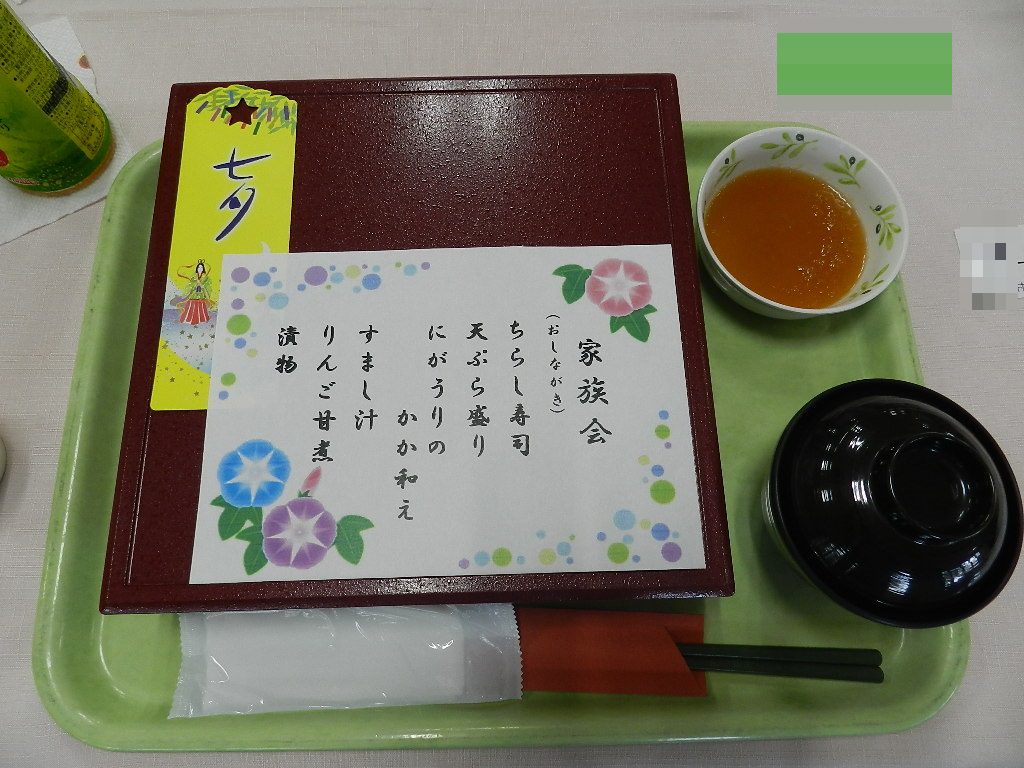 七夕
家族会
（おしながき）
ちらし寿司
天ぷら盛り
にがうりの
かか和え
すまし汁
りんご甘煮
漬物